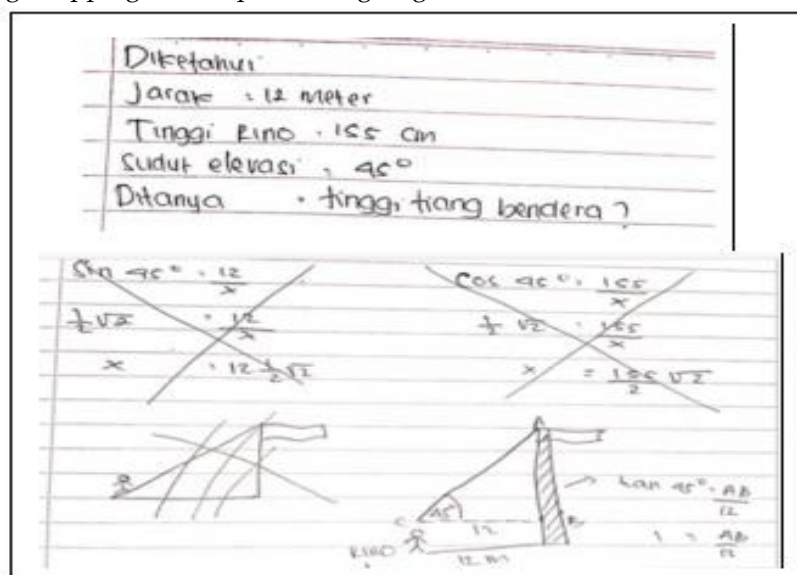 Diketahui
Jarak : 12 meter
Tinggi Rino : 155 cm
Sudut elevasi : 45°
Ditanya : tinggi tiang bendera ?
Sin 45° = 12/x
1/2 √2 = 12/x
x = 12 1/2 √2
Cos 45° = 155/x
1/2 √2 = 155/x
x = 155/2 √2
A
C 45° 12 B
RINO 12 m
→ tan 45° = AB/12
1 = AB/12